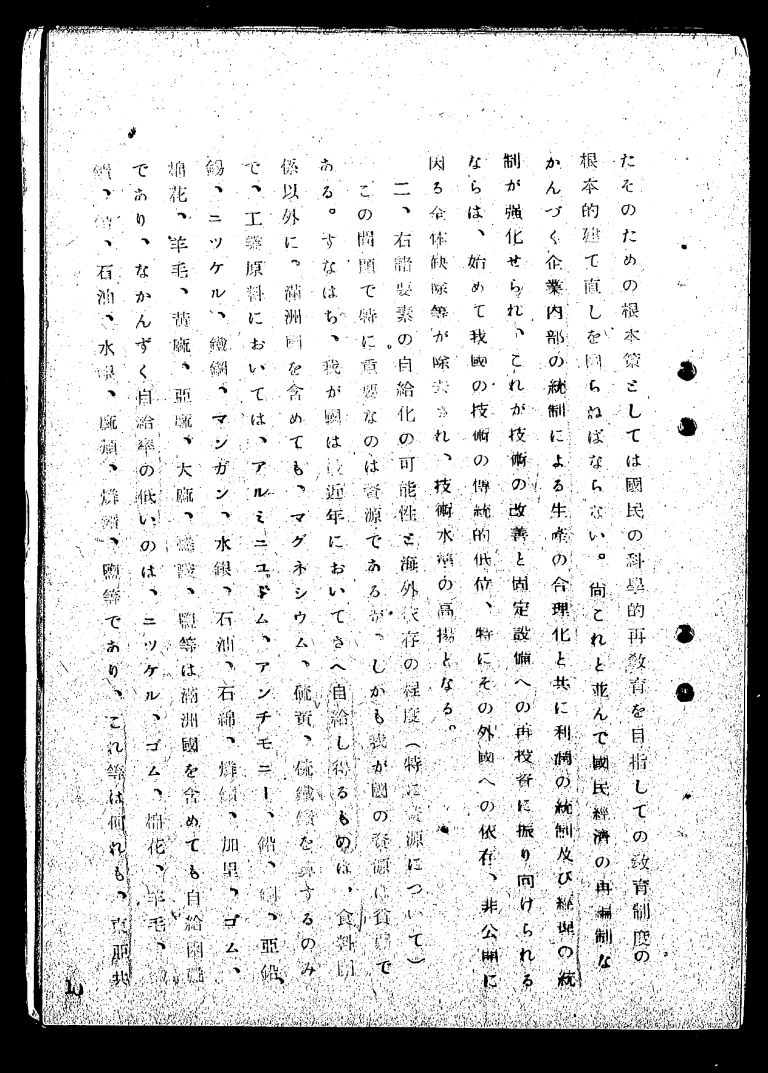 たそのための根本策としては國民の科學的再敎育を目指しての敎育制度の
根本的建て直しを圖らねばならない。尙これと並んで國民經濟の再編制な
かんづく企業內部の統制による生產の合理化と共に利潤の統制及び經理の統
制が强化せられ、これが技術の改善と固定設備への再投資に振り向けられる
ならは、始めて我國の技術の傳統的低位、特にその外國への依存、非公開に
因る全体缺除等が除去され、技術水準の高揚となる。
二、右諸要素の自給化の可能性と海外依存の程度（特に資源について）
この問題で特に重要なのは資源であるが、しかも我が國の資源は貧弱で
ある。すなはち、我が國は最近年においてさへ自給し得るものは、食料關
係以外に。滿洲國を含めても、マグネシウム、硫黃、硫鐵鑛を算するのみ
で、工業原料においては、アルミニユーム、アンチモニー、鉛、銅、亞鉛、
錫、ニツケル、鐵鋼、マンガン、水銀、石油、石綿、燐鑛、加里、ゴム、
棉花、羊毛、黃麻、亞麻、大麻、鹽等は滿洲國を含めても自給困難
であり、なかんずく自給率の低いのは、ニツケル、ゴム、棉花、羊毛、
石油、水銀、燐鑛、鹽等であり、これ等は何れも、東亞共